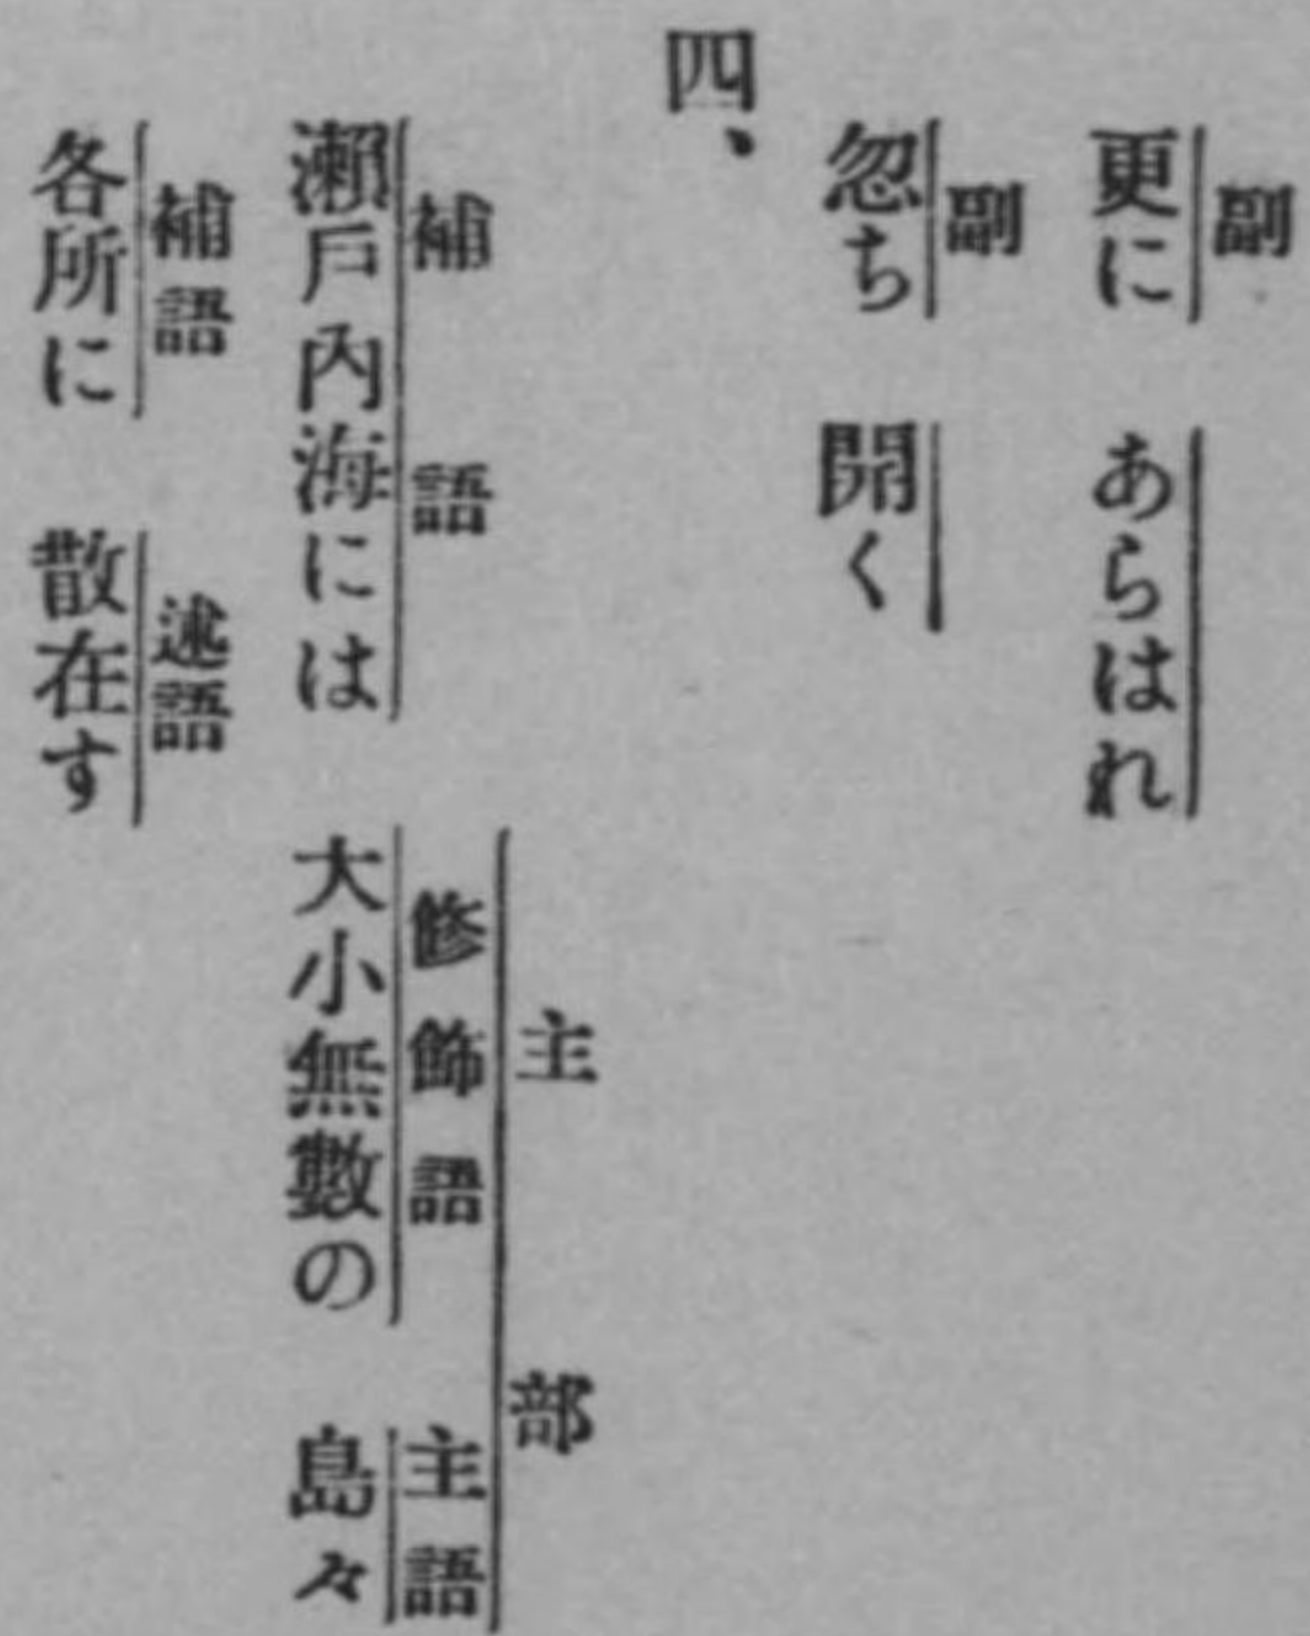 副
更に あらはれ
副
忽ち 開く
四、
主部
補語 修飾語 主語
瀨戶內海には 大小無數の 島々
補語 述語
各所に 散在す